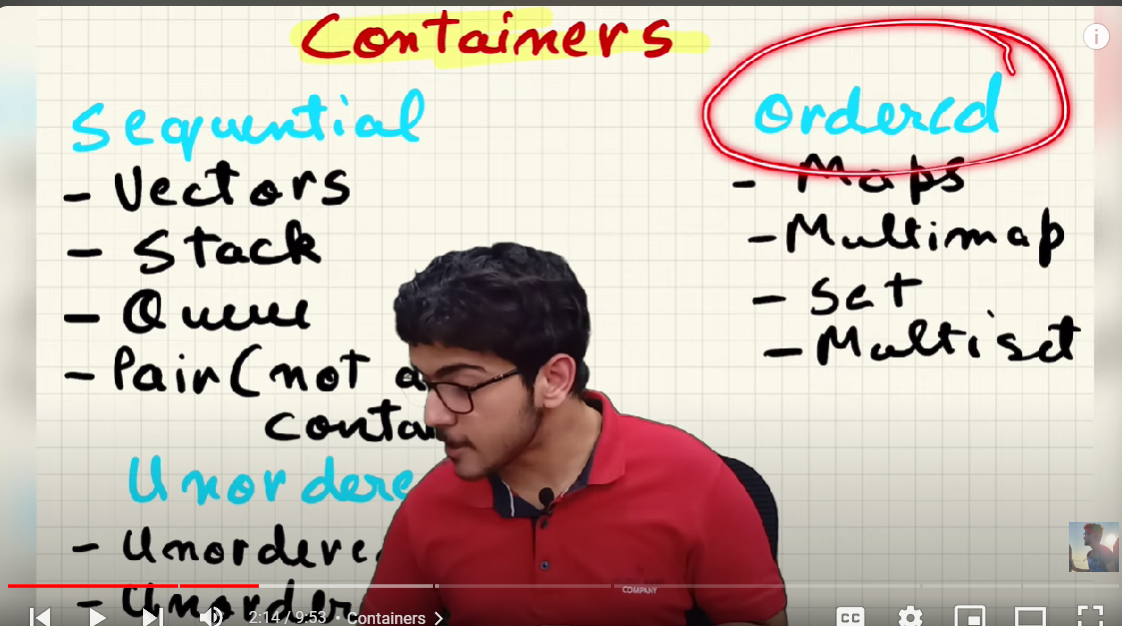 Containers
Sequential
- Vectors
- Stack
- Queue
- Pair (not a
conta
Unordere
- Unordere
- Unorder
Ordered
- Maps
- Multimap
- Set
- Multiset
COMPANY
2:14 / 9:53 • Containers >
CC